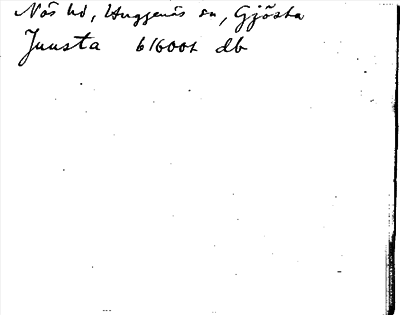 Näs hd, Huggenäs sn, Gjösta
Juusta 616001 db